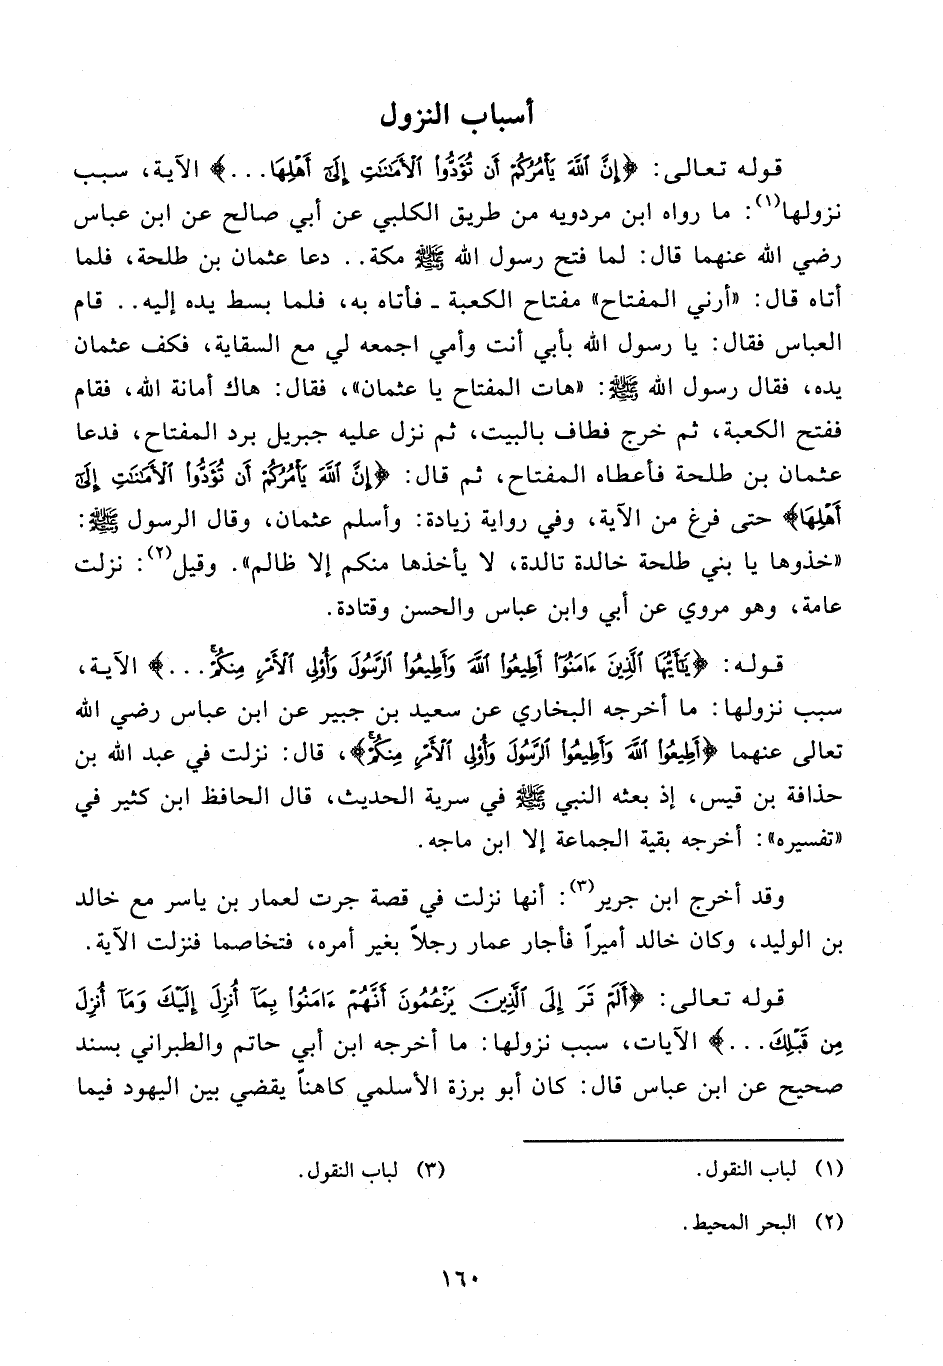 أسباب النزول
قوله تعالى: ﴿إِنَّ ٱللَّهَ يَأْمُرُكُمْ أَن تُؤَدُّوا۟ ٱلْأَمَـٰنَـٰتِ إِلَىٰٓ أَهْلِهَا...﴾ الآية، سبب
نزولها(١): ما رواه ابن مردويه من طريق الكلبي عن أبي صالح عن ابن عباس
رضي الله عنهما قال: لما فتح رسول الله ﷺ مكة.. دعا عثمان بن طلحة، فلما
أتاه قال: «أرني المفتاح» مفتاح الكعبة ـ فأتاه به، فلما بسط يده إليه.. قام
العباس فقال: يا رسول الله بأبي أنت وأمي اجمعه لي مع السقاية، فكف عثمان
يده، فقال رسول الله ﷺ: «هات المفتاح يا عثمان»، فقال: هاك أمانة الله، فقام
ففتح الكعبة، ثم خرج فطاف بالبيت، ثم نزل عليه جبريل برد المفتاح، فدعا
عثمان بن طلحة فأعطاه المفتاح، ثم قال: ﴿إِنَّ ٱللَّهَ يَأْمُرُكُمْ أَن تُؤَدُّوا۟ ٱلْأَمَـٰنَـٰتِ إِلَىٰٓ
أَهْلِهَا﴾ حتى فرغ من الآية، وفي رواية زيادة: وأسلم عثمان، وقال الرسول ﷺ:
«خذوها يا بني طلحة خالدة تالدة، لا يأخذها منكم إلا ظالم». وقيل(٢): نزلت
عامة، وهو مروي عن أبي وابن عباس والحسن وقتادة.
قوله: ﴿يَـٰٓأَيُّهَا ٱلَّذِينَ ءَامَنُوٓا۟ أَطِيعُوا۟ ٱللَّهَ وَأَطِيعُوا۟ ٱلرَّسُولَ وَأُو۟لِى ٱلْأَمْرِ مِنكُمْ ۖ...﴾ الآية،
سبب نزولها: ما أخرجه البخاري عن سعيد بن جبير عن ابن عباس رضي الله
تعالى عنهما ﴿أَطِيعُوا۟ ٱللَّهَ وَأَطِيعُوا۟ ٱلرَّسُولَ وَأُو۟لِى ٱلْأَمْرِ مِنكُمْ ۖ﴾، قال: نزلت في عبد الله بن
حذافة بن قيس، إذ بعثه النبي ﷺ في سرية الحديث، قال الحافظ ابن كثير في
«تفسيره»: أخرجه بقية الجماعة إلا ابن ماجه.
وقد أخرج ابن جرير(٣): أنها نزلت في قصة جرت لعمار بن ياسر مع خالد
بن الوليد، وكان خالد أميراً فأجار عمار رجلاً بغير أمره، فتخاصما فنزلت الآية.
قوله تعالى: ﴿أَلَمْ تَرَ إِلَى ٱلَّذِينَ يَزْعُمُونَ أَنَّهُمْ ءَامَنُوا۟ بِمَآ أُنزِلَ إِلَيْكَ وَمَآ أُنزِلَ
مِن قَبْلِكَ...﴾ الآيات، سبب نزولها: ما أخرجه ابن أبي حاتم والطبراني بسند
صحيح عن ابن عباس قال: كان أبو برزة الأسلمي كاهناً يقضي بين اليهود فيما
(١) لباب النقول.
(٢) البحر المحيط.
(٣) لباب النقول.
١٦٠